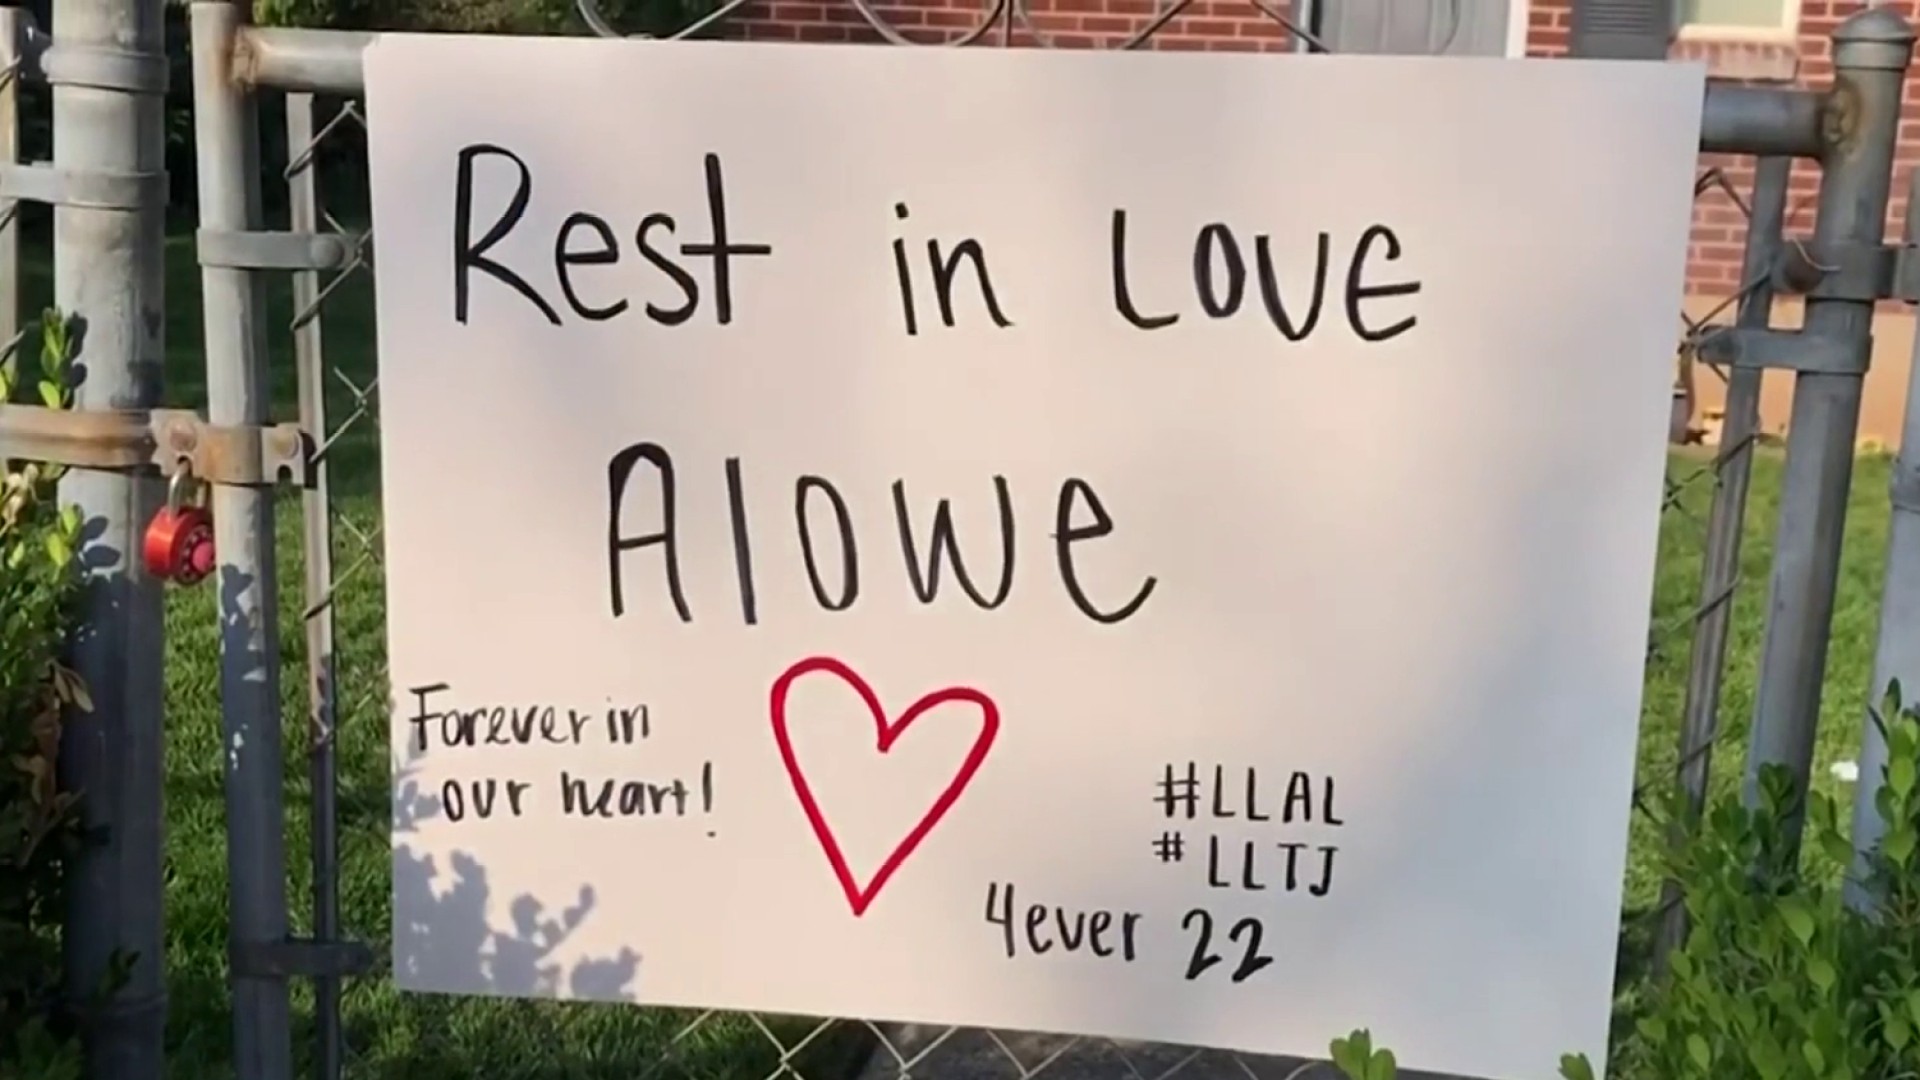 Rest in Love
Alowe
Forever in
our heart!
#LLAL
#LLTJ
4ever 22